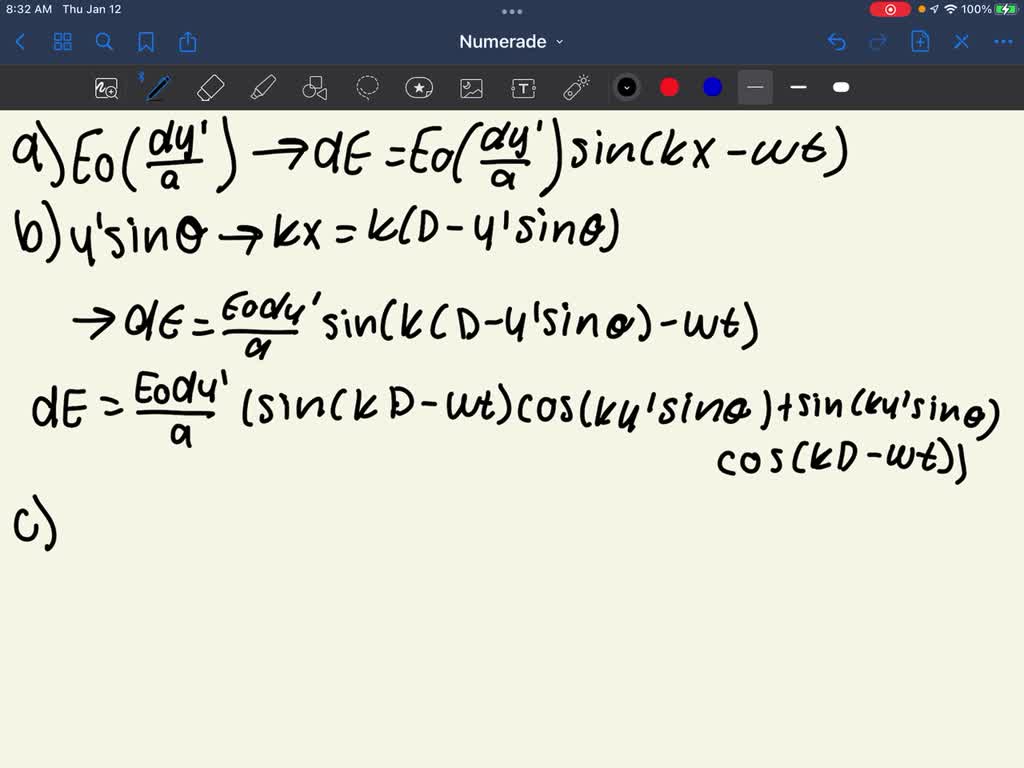 8:32 AM Thu Jan 12
100%
Numerade
a) E0(dy'/a) → dE = E0(dy'/a) sin(kx - wt)
b) y'sinθ → kx = k(D - y'sinθ)
→ dE = E0dy'/a sin(k(D - y'sinθ) - wt)
dE = E0dy'/a (sin(kD - wt)cos(ky'sinθ) + sin(ky'sinθ)
cos(kD - wt))
c)